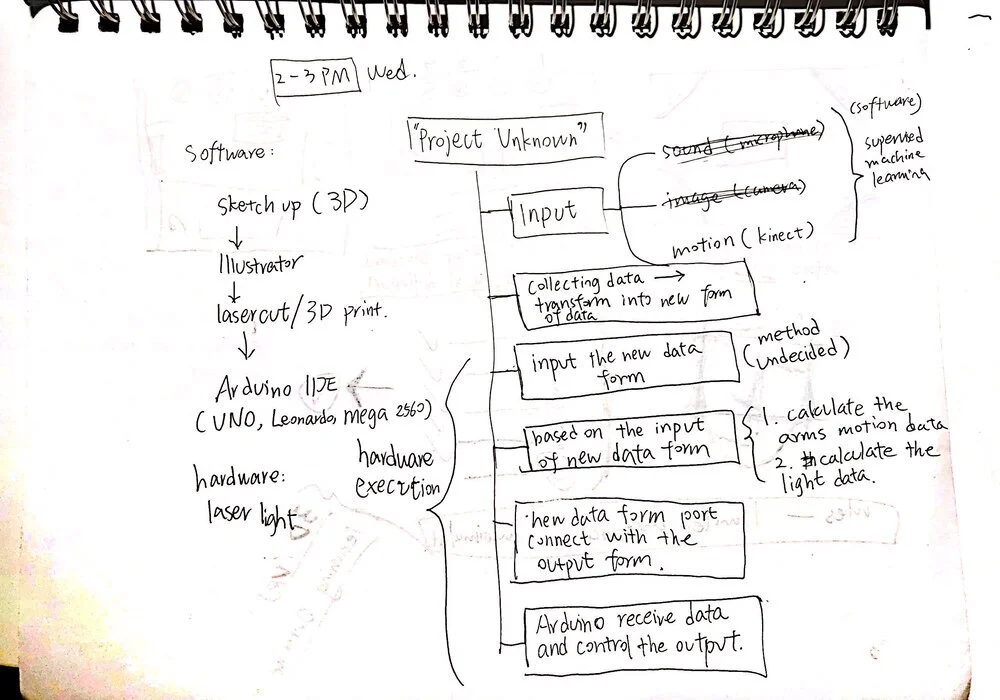 2-3 PM Wed.
"Project Unknown"
software:
sketch up (3D)
Illustrator
lasercut/3D print.
Arduino IDE
(UNO, Leonardo, mega 2560)
hardware:
laser light
hardware
execution
Input
sound (microphone)
image (camera)
motion (kinect)
(software)
supervised
machine
learning
collecting data →
transform into new form
of data
input the new data
form
method
(undecided)
based on the input
of new data form
1. calculate the
arms motion data
2. calculate the
light data.
new data form port
connect with the
output form.
Arduino receive data
and control the output.